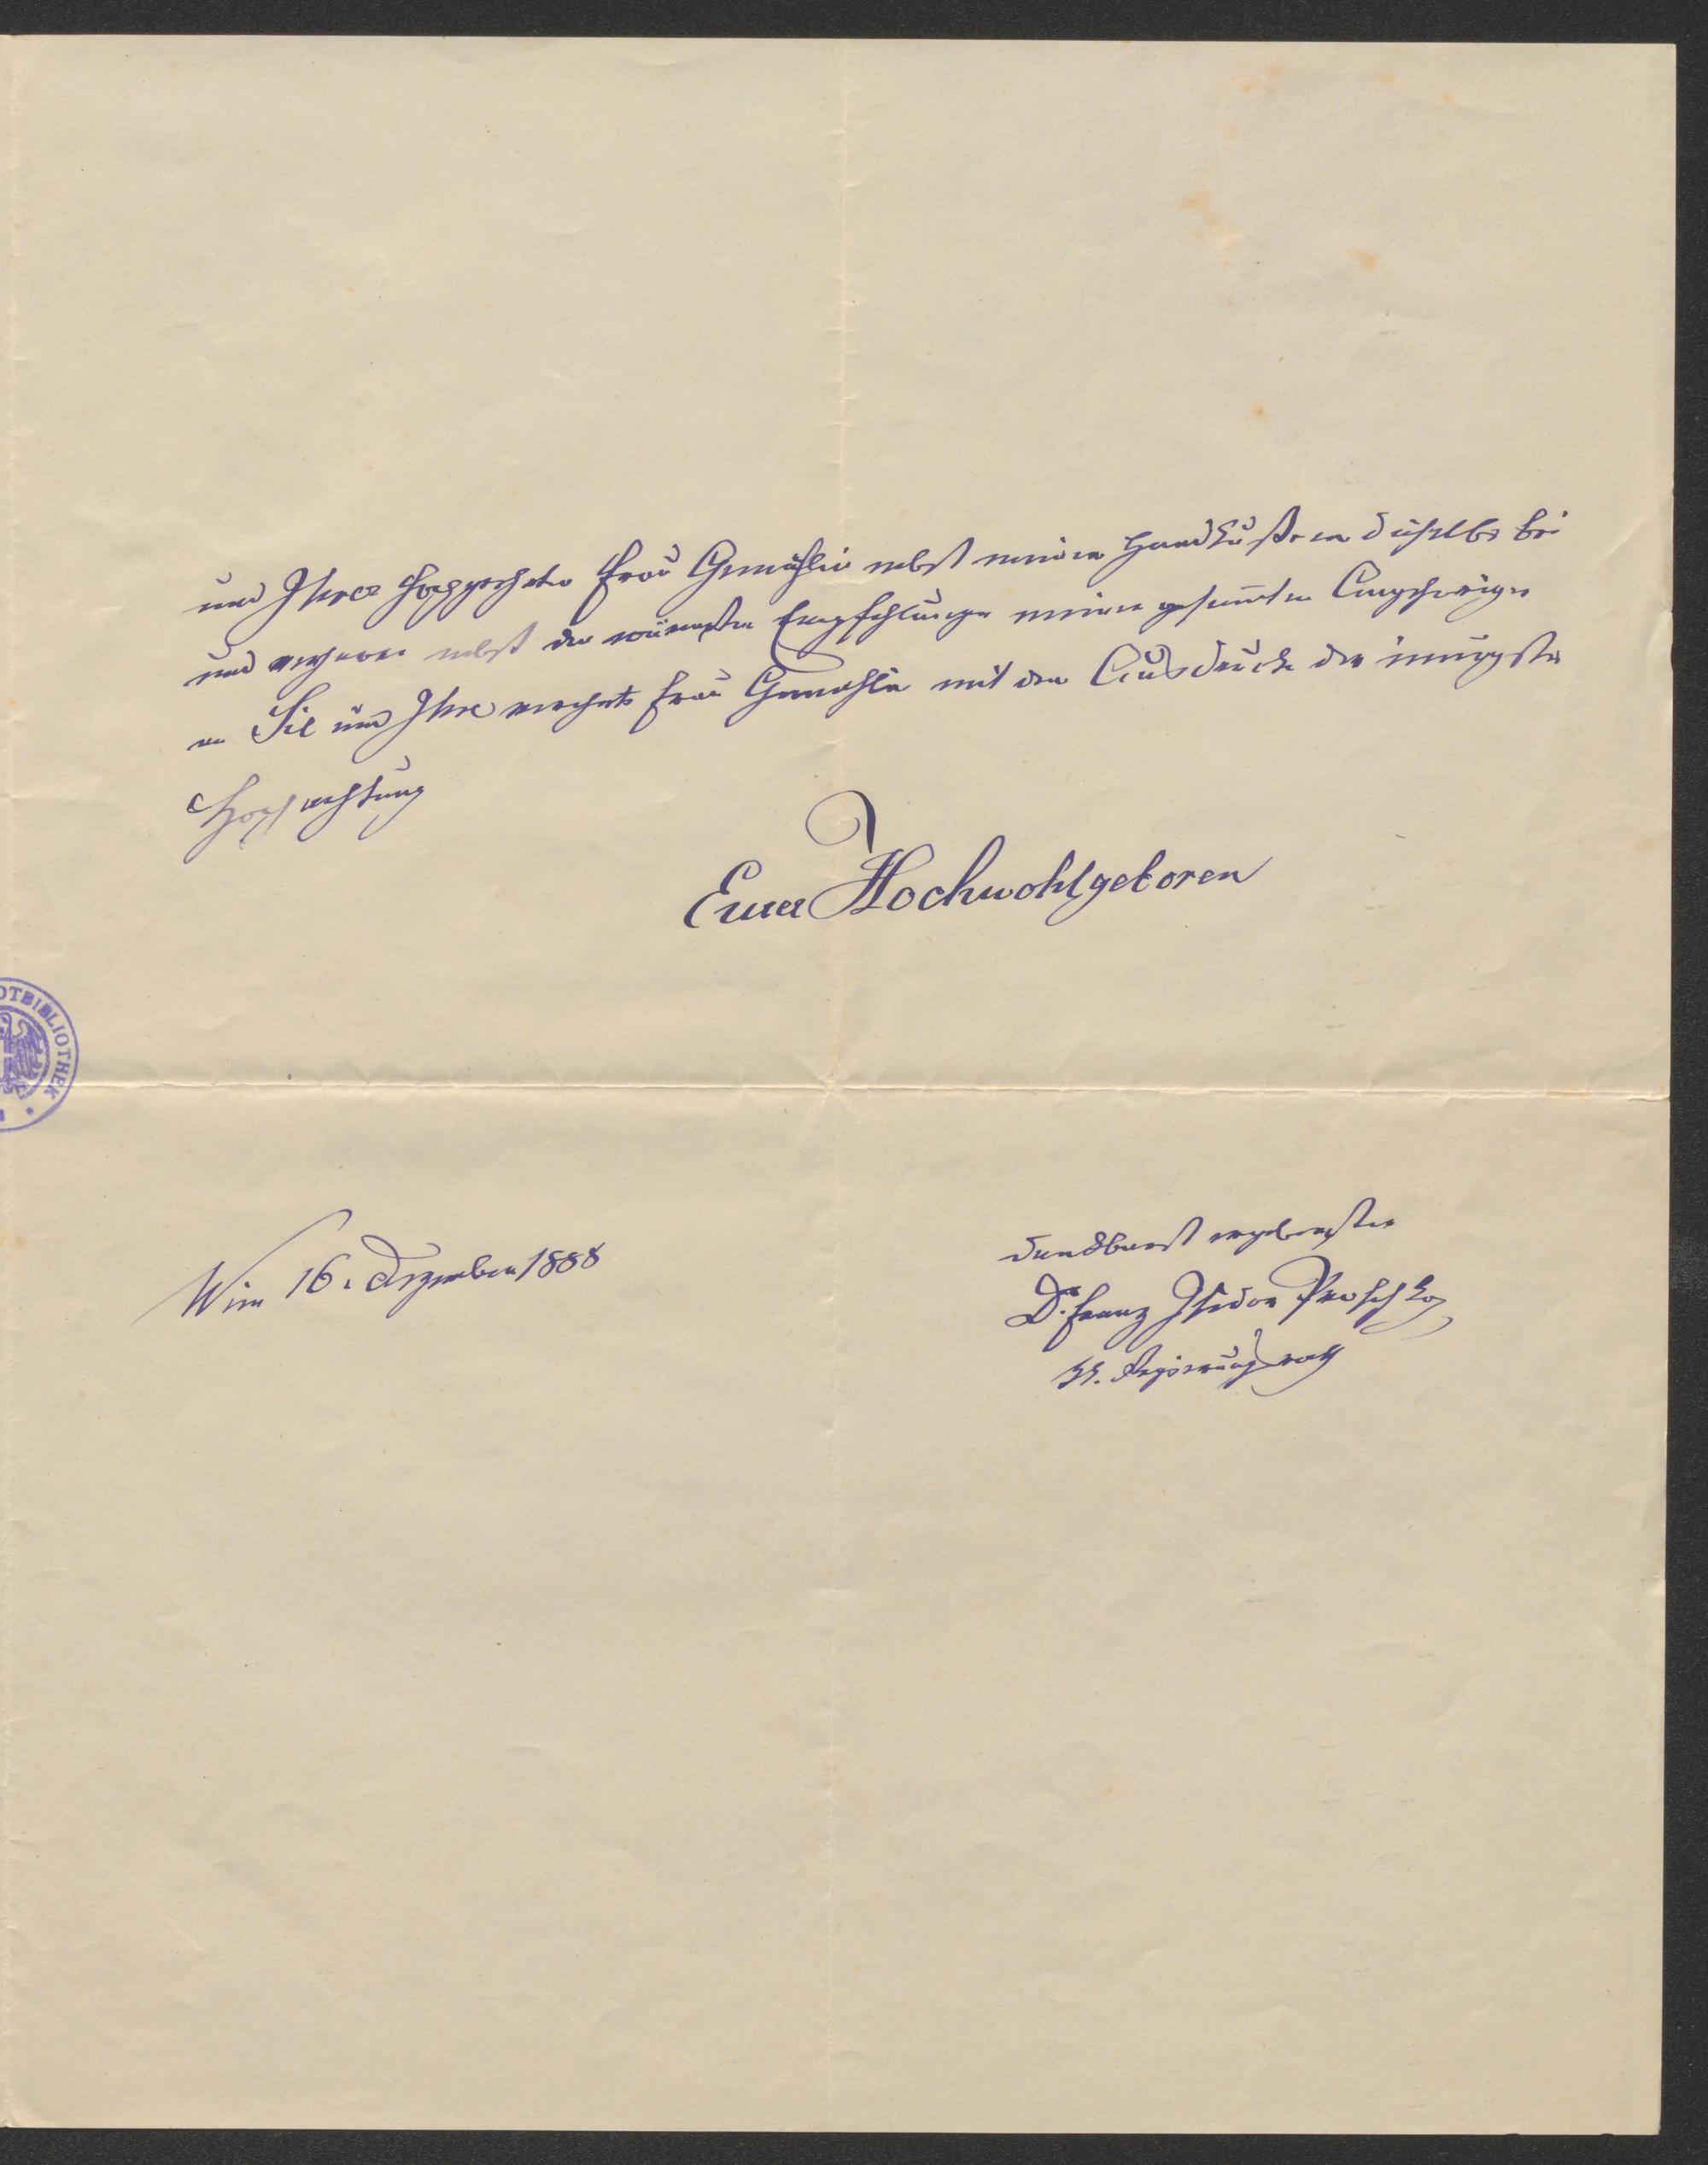 und Ihrer hochgeehrten Frau Gemahlin nebst meinen Handküssen dieselbe bei
und verharre nebst den wärmsten Empfehlungen meiner gesammten Angehörigen
an Sie und Ihre verehrte Frau Gemahlin mit dem Ausdrucke der innigsten
Hochachtung
Euer Hochwohlgeboren
OTBIBLIOTHEK
Wien 16. Dezember 1888
dankbarst ergebenster
Dr. Franz Isidor Proschko
kk. Regierungsrath